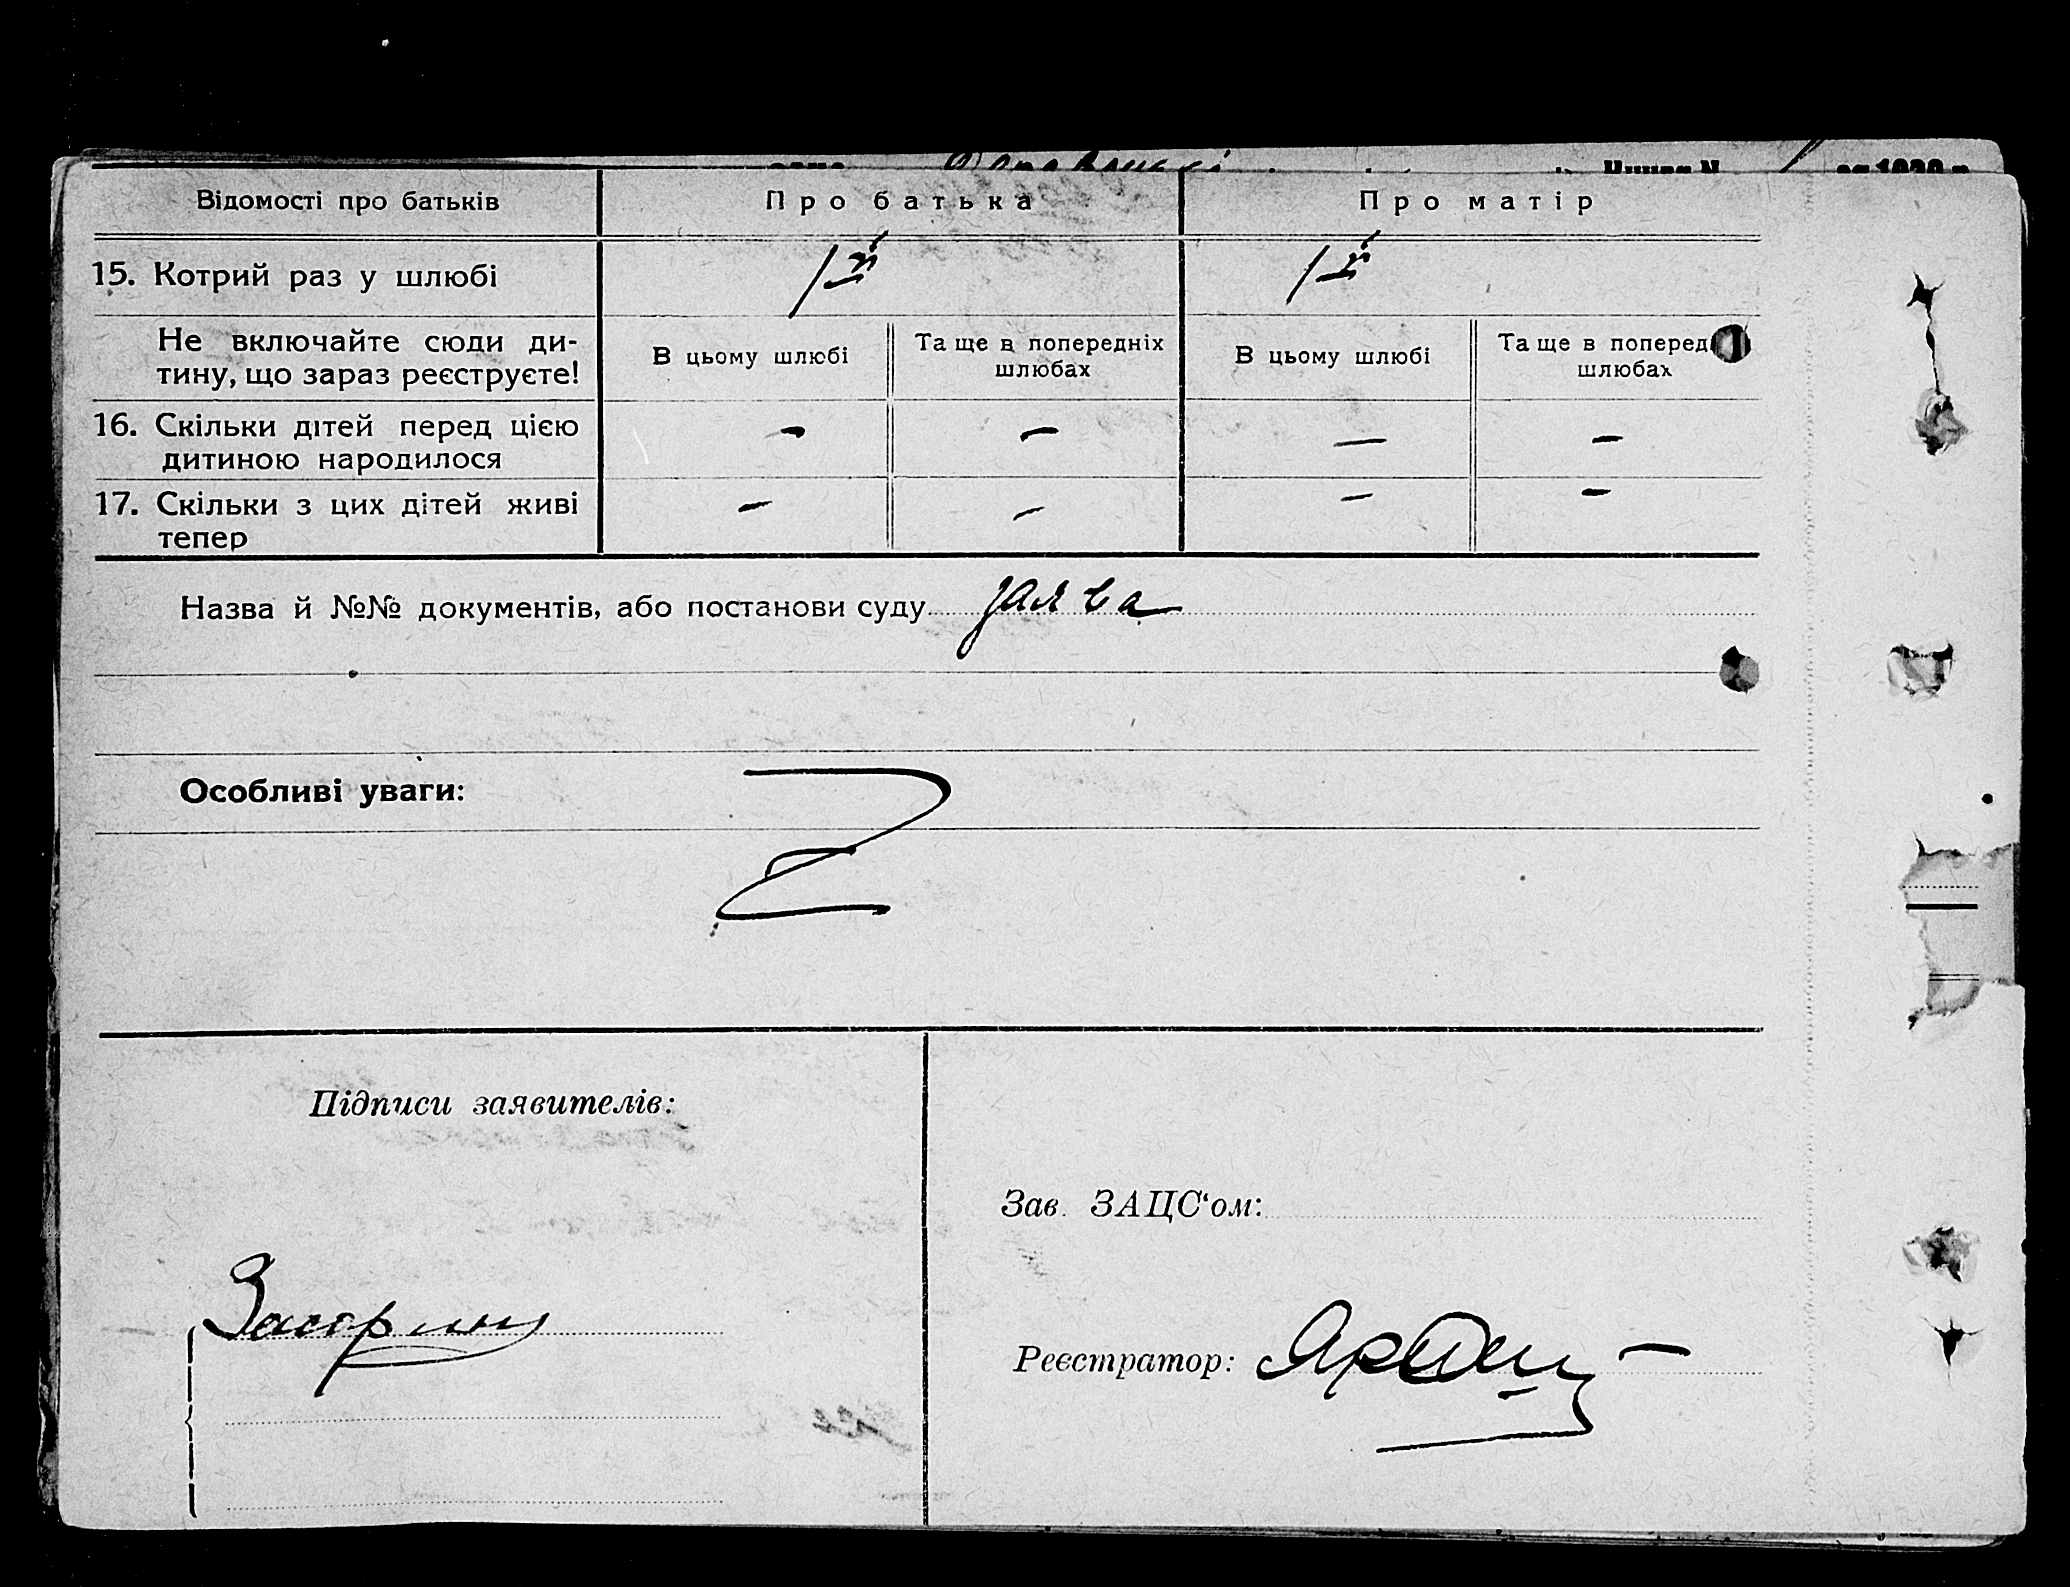 Книга № за 1930 р.
Відомості про батьків Про батька Про матір
15. Котрий раз у шлюбі 1й 1й
Не включайте сюди ди-
тину, що зараз реєструєте!
В цьому шлюбі Та ще в попередніх шлюбах В цьому шлюбі Та ще в поперед шлюбах
16. Скільки дітей перед цією — — — —
дитиною народилося
17. Скільки з цих дітей живі — — — —
тепер
Назва й №№ документів, або постанови суду заява
Особливі уваги:
Підписи заявителів:
Зав. ЗАЦС‘ом:
Реєстратор: